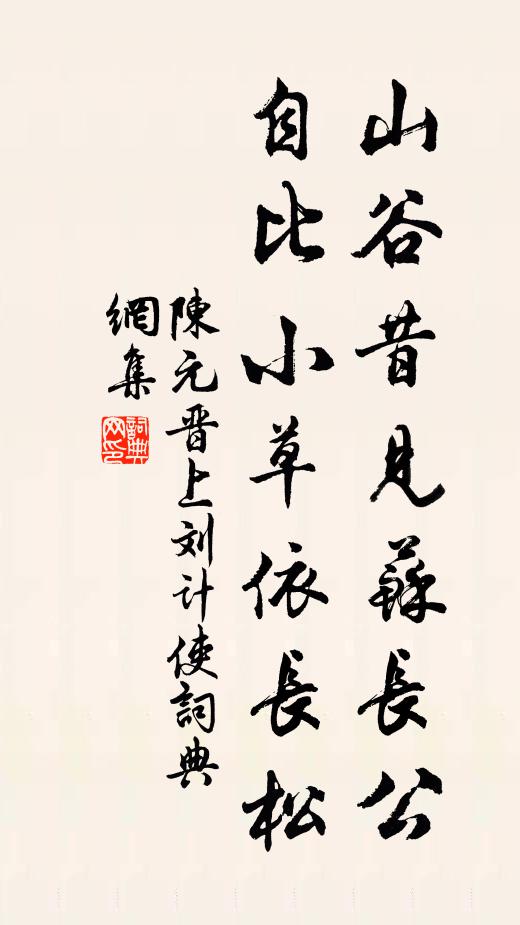 山谷昔見蘇長公
自比小草依長松
陳元晋上刘计使詞典
網集
詞典
网印